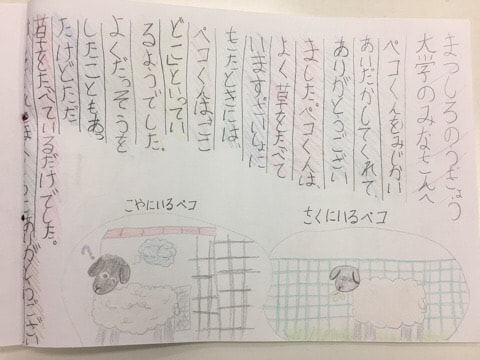 まつしろのうぎょう
大学のみなさんへ
ペコくんをみじかい
あいだかしてくれて、
ありがとうござい
ました。ペコくんは、
よく草をたべて
いますさいしょに
きたときには
ペコくんはここ
どこ」といってい
るようでした。
よくだっそうを
したこともあっ
たけどただ
草をたべているだけでした。
ありがとうござい
こやにいるペコ
さくにいるペコ
?